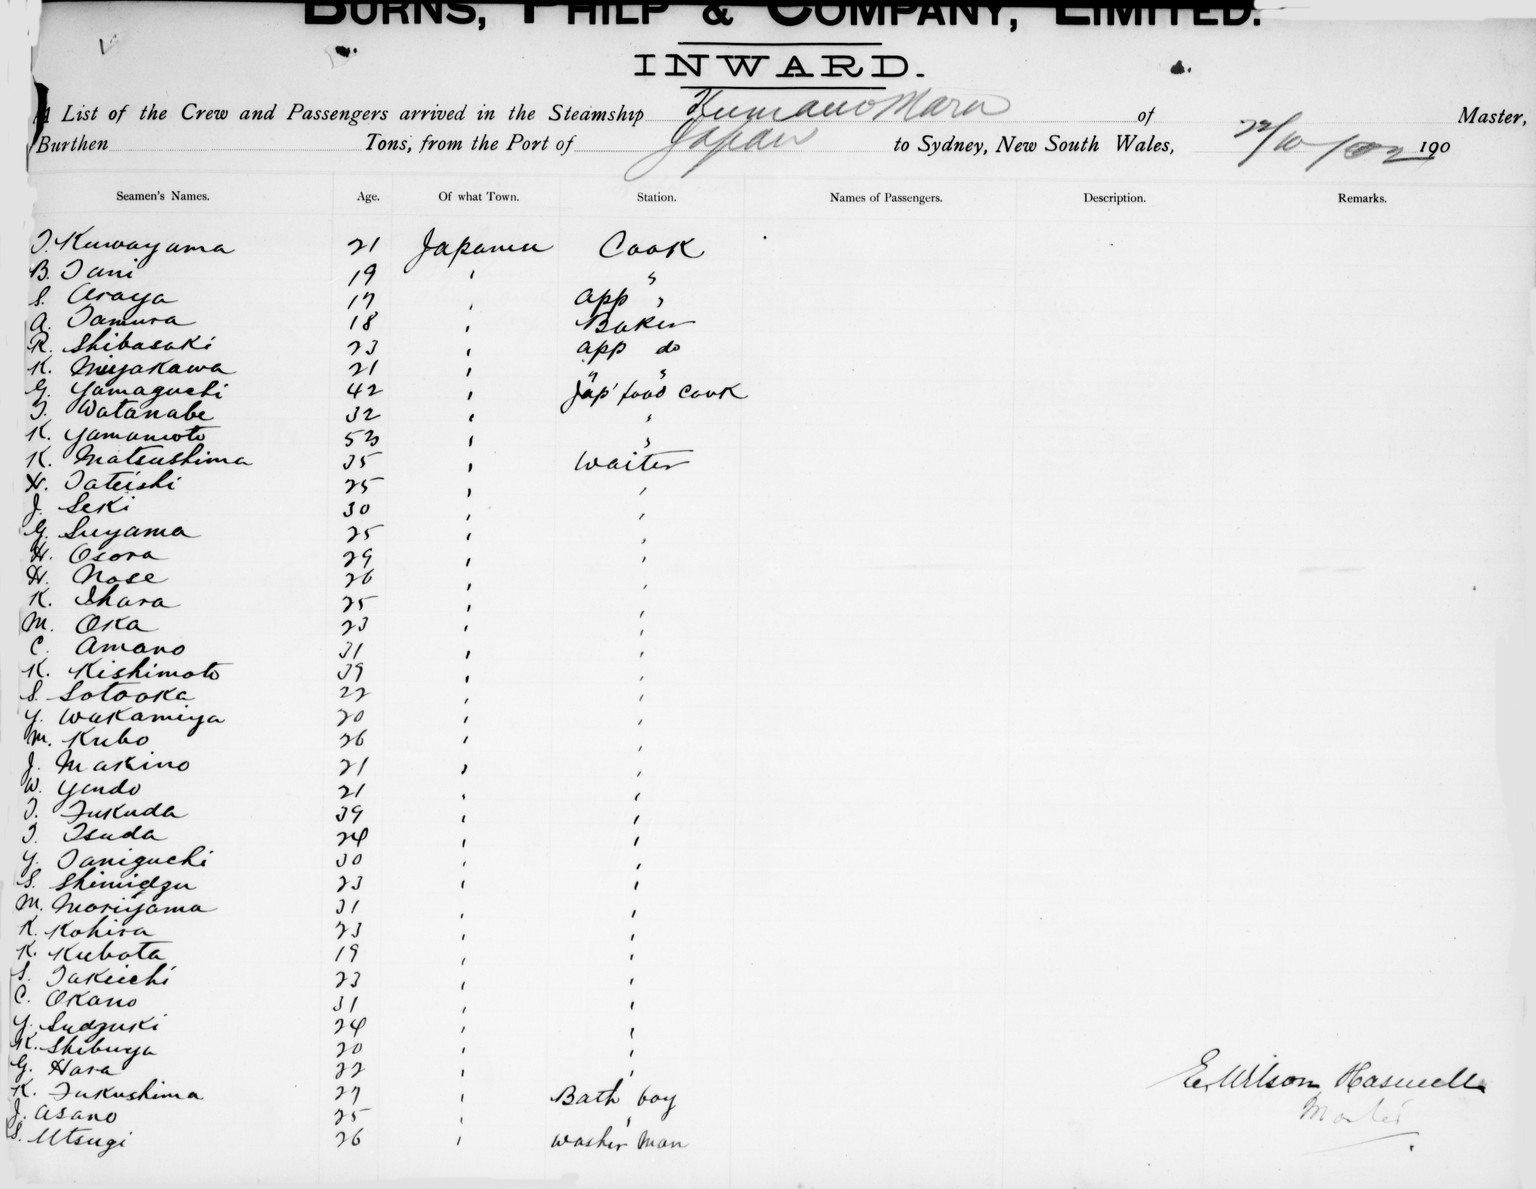 BURNS, PHILP & COMPANY, LIMITED.
INWARD.
A List of the Crew and Passengers arrived in the Steamship Kumano Maru of Master,
Burthen Tons, from the Port of Japan to Sydney, New South Wales, 22/10/02 190
Seamen's Names. Age. Of what Town. Station. Names of Passengers. Description. Remarks.
T. Kuwayama 21 Japanese Cook
B. Tani 19 " "
S. Araya 17 " app "
A. Tamura 18 " Baker
R. Shibasaki 23 " app do
K. Miyakawa 21 " " "
G. Yamaguchi 42 " Jap' food Cook
T. Watanabe 32 " "
K. Yamamoto 53 " "
K. Matsushima 35 " Waiter
H. Tateishi 25 " "
J. Seki 30 " "
G. Suyama 25 " "
H. Osora 29 " "
H. Nose 26 " "
K. Ihara 25 " "
M. Oka 23 " "
C. Amano 31 " "
K. Kishimoto 39 " "
S. Sotooka 22 " "
Y. Wakamiya 20 " "
M. Kubo 26 " "
J. Makino 21 " "
W. Yendo 21 " "
T. Fukuda 39 " "
T. Tsuda 24 " "
Y. Taniguchi 30 " "
S. Shimidzu 23 " "
M. Moriyama 31 " "
K. Kohira 23 " "
K. Kubota 19 " "
S. Takeichi 23 " "
C. Okano 31 " "
Y. Sudzuki 24 " "
K. Shibuya 20 " "
G. Hara 22 " "
K. Fukushima 27 " Bath boy
J. Asano 25 " "
S. Utsugi 26 " Washer Man
E. Wilson Haswell
Master